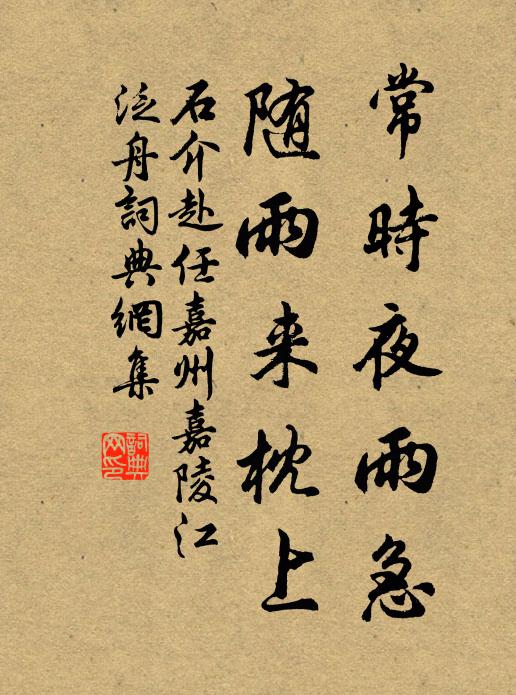 常時夜雨急
随雨来枕上
石介赴任嘉州嘉陵江
泛舟詞典網集
詞典
网印